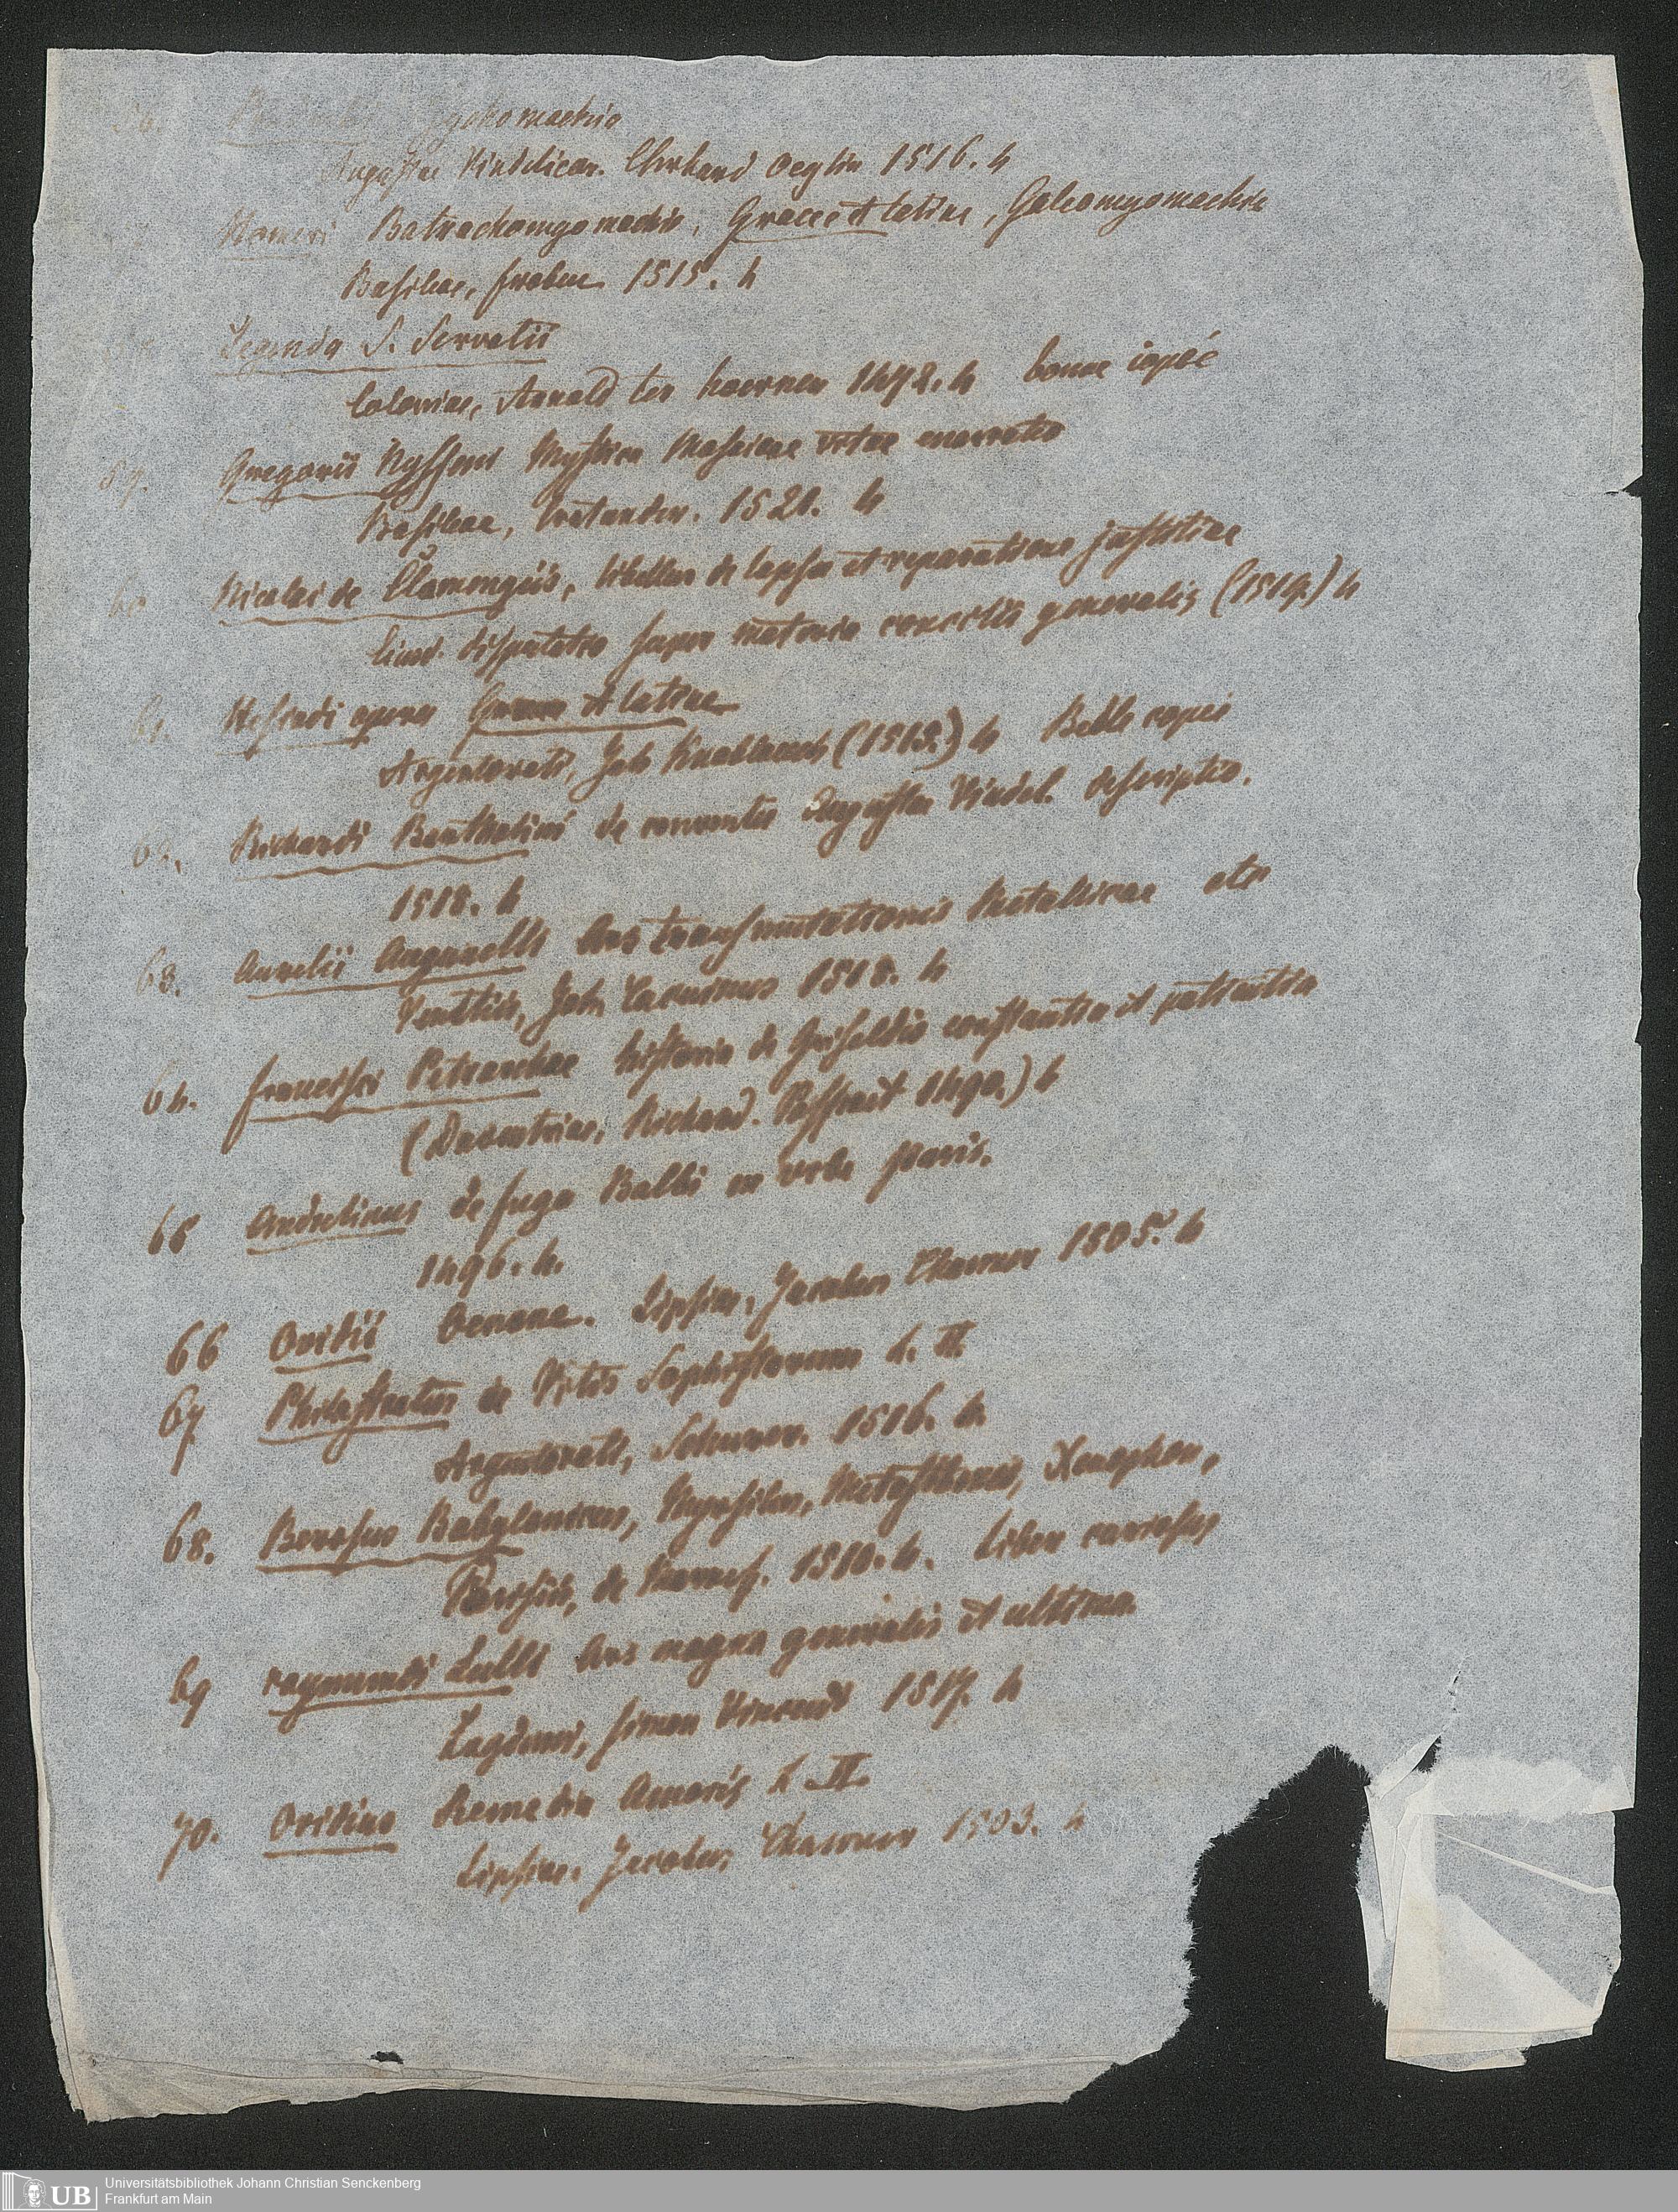 56. Psychomachia
Augustae Vindelicor. Erhard Oeglin 1516. 4
Homeri Batrachomyomachia, Graece et latine, Galeomyomachia
Basileae, froben 1515. 4
58. Legenda S. Servatii
Coloniae, Arnold ter hoernen 1472. 4 bonne copie
59. Gregorii Nysseni Mystica Mosaicae vitae enarratio
Basileae, Cratander. 1521. 4
60 Nicolai de Clamengiis, libellus de lapsu et reparatione justitiae
Eiusd. disputatio super materia concilii generalis (1519.) 4
61. Hesiodi opera Graece et latine
Argentorati, Joh Knoblauch (1513.) 4 Belle copie
62. Richardi Bartholini de conventu Augustae Vindel. descriptio.
1518. 4
63. Aurelii Augurelli Ars transmutationis Metallicae etc
Venetiis, Joh. Tacuinus 1518. 4
64. francisci Petrarchae historia de Griseldis constantia et patientia
(Daventriae, Richard. Paffrait 1490.) 4
65 Andrelinus de fuga Balbi ex urbe paris.
1496. 4.
66 Ovidii Venone. Lipsiae, Jacobus Thanner 1505. 4
67 Philostratus de Vitis Sophistorum L. II.
Argentorati, Schurer. 1516. 4.
68. Berosus Babylonicus, Myrsilus, Metasthenes, Xenophon,
Parisiis, de Marnef. 1510. 4. Liber curiosus
69 raymundi Lulli Ars magna generalis et ultima.
Lugduni, Simon Vincent 1517. 4
70. Ovidius Remedia Amoris L II.
Lipsiae. Jacobus Thanner 1503. 4
UB Universitätsbibliothek Johann Christian Senckenberg
Frankfurt am Main